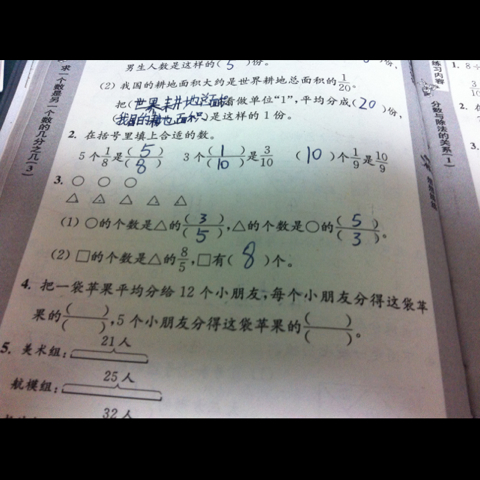 男生人数是这样的(5)份。
(2)我国的耕地面积大约是世界耕地总面积的1/20。
把(世界耕地总面积)看做单位“1”,平均分成(20)份,
(我国的耕地面积)是这样的1份。
2. 在括号里填上合适的数。
5个1/8是(5)/(8) 3个(1)/(10)是3/10 (10)个1/9是10/9
3. ○ ○ ○
△ △ △ △ △
(1)○的个数是△的(3)/(5),△的个数是○的(5)/(3)。
(2)□的个数是△的8/5,□有(8)个。
4. 把一袋苹果平均分给12个小朋友,每个小朋友分得这袋苹
果的( )/( ),5个小朋友分得这袋苹果的( )/( )。
5. 美术组: 21人
航模组: 25人
32人
求一个数是另一个数的几分之几(3)
练习内容
分数与除法的关系(1)